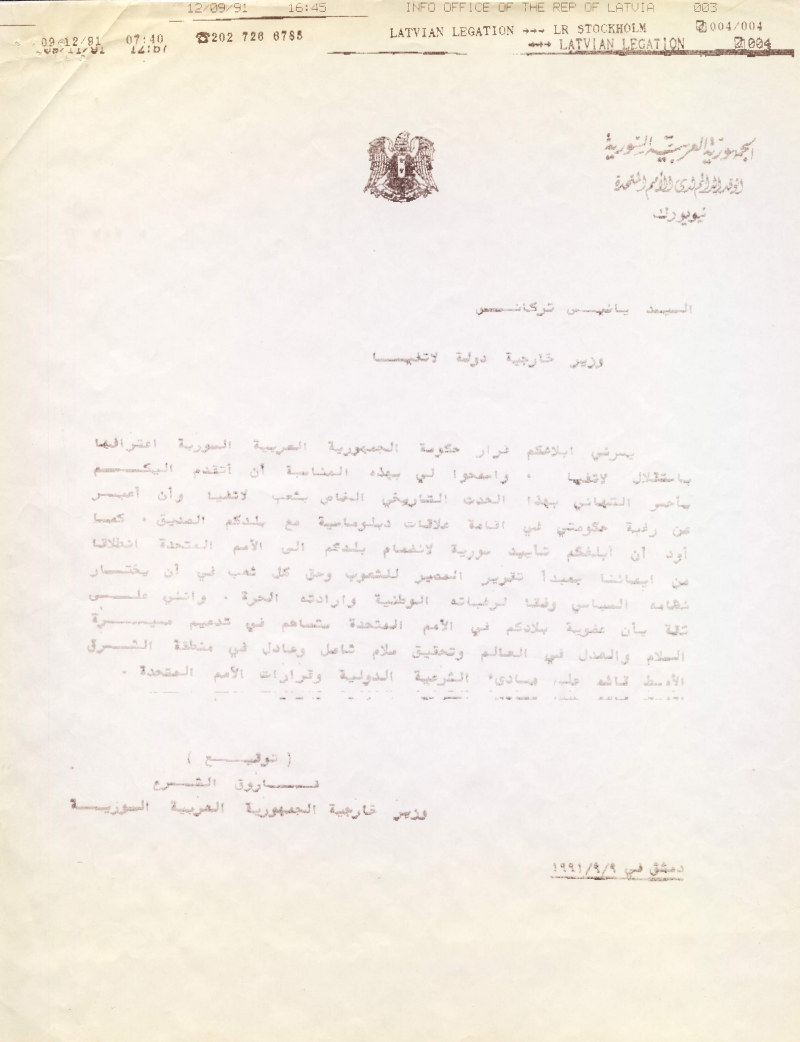 12/09/91 16:45 INFO OFFICE OF THE REP OF LATVIA 003
09/12/91 07:40 ☎202 726 6785 LATVIAN LEGATION →→→ LR STOCKHOLM 004/004
12:57 →→→ LATVIAN LEGATION 004
الجمهورية العربية السورية
الوفد الدائم لدى الأمم المتحدة
نيويورك
السيد يانيس تركانس
وزير خارجية دولة لاتفيا
يسرني ابلاغكم قرار حكومة الجمهورية العربية السورية اعترافها
باستقلال لاتفيا . واسمحوا لي بهذه المناسبة أن أتقدم اليكم
بأحر التهاني بهذا الحدث التاريخي الخاص بشعب لاتفيا وأن أعبر
عن رغبة حكومتي في اقامة علاقات دبلوماسية مع بلدكم الصديق . كما
أود أن أبلغكم تأييد سورية لانضمام بلدكم الى الأمم المتحدة انطلاقا
من ايماننا بمبدأ تقرير المصير للشعوب وحق كل شعب في أن يختار
نظامه السياسي وفقا لرغباته الوطنية وارادته الحرة . وانني على
ثقة بأن عضوية بلادكم في الأمم المتحدة ستساهم في تدعيم مسيرة
السلام والعدل في العالم وتحقيق سلام شامل وعادل في منطقة الشرق
الأوسط قائم على مبادئ الشرعية الدولية وقرارات الأمم المتحدة .
( توقيع )
فاروق الشرع
وزير خارجية الجمهورية العربية السورية
دمشق في ١٩٩١/٩/٩